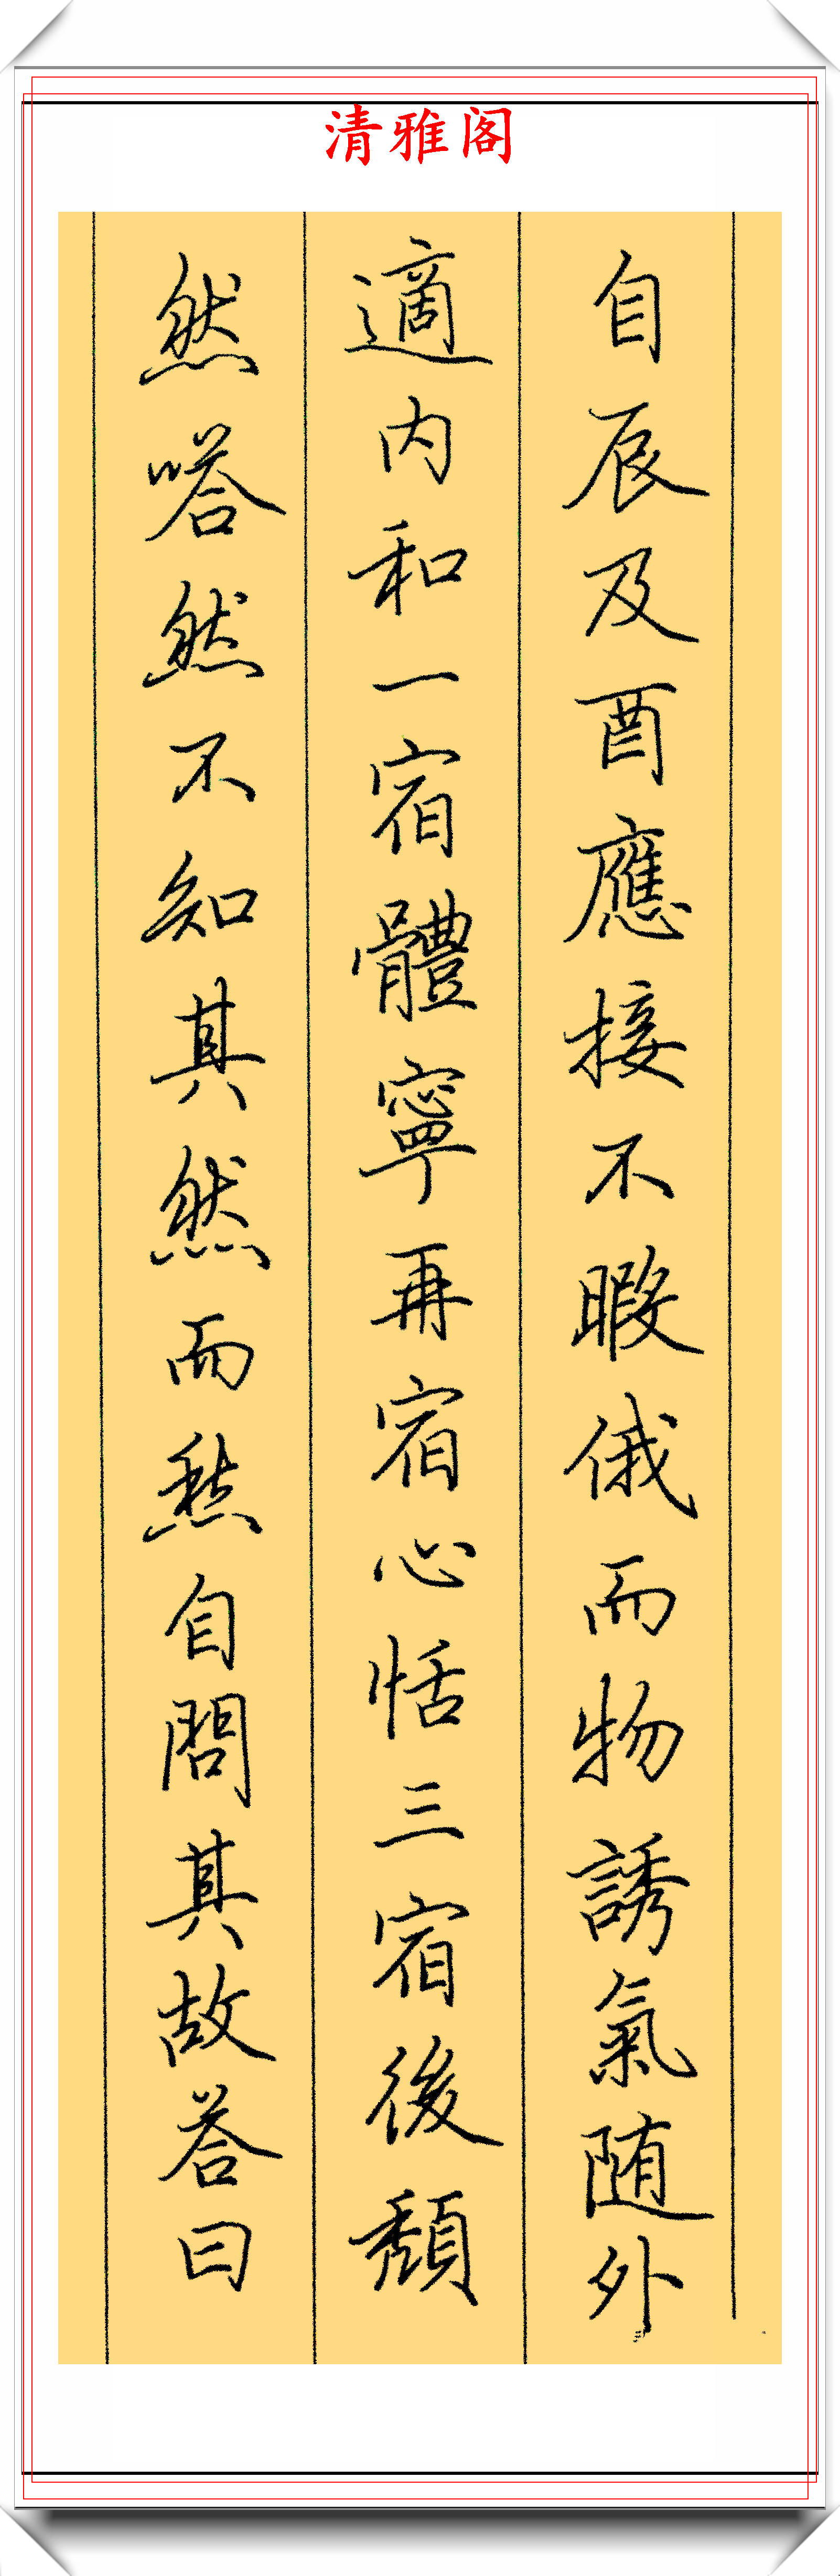 清雅阁
自辰及酉應接不暇俄而物誘氣随外
適内和一宿體寧再宿心恬三宿後頹
然嗒然不知其然而然自問其故答曰